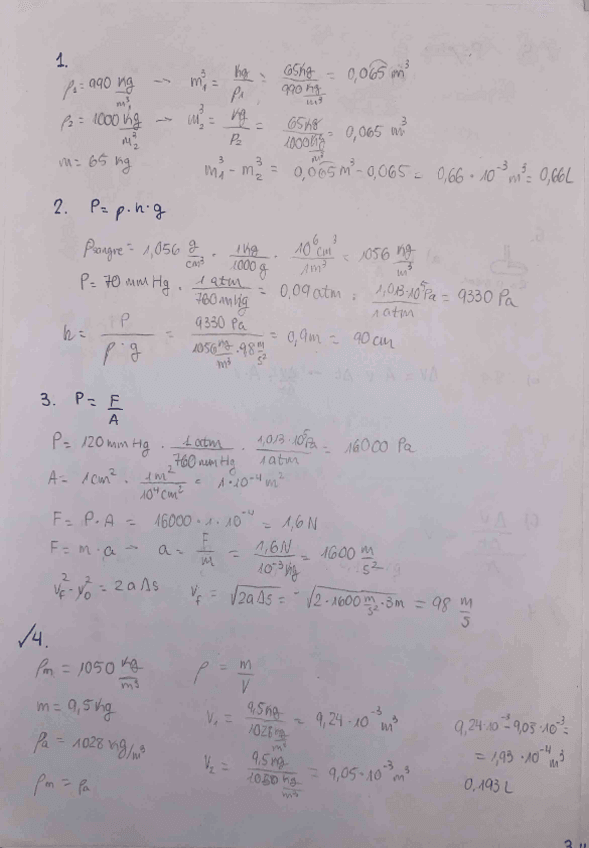 1.
ρ₁ = 990 kg/m³ → m₁³ = kg/ρ₁ = 65kg/990 kg/m³ = 0,065 m³
ρ₂ = 1000 kg/m³ → m₂³ = kg/ρ₂ = 65kg/1000 kg/m³ = 0,065 m³
m = 65 kg m₁³ - m₂³ = 0,065m³ - 0,065 = 0,66 · 10⁻³ m³ = 0,66L
2. P = ρ · h · g
ρsangre = 1,056 g/cm³ · 1kg/1000g · 10⁶ cm³/1m³ = 1056 kg/m³
P = 70 mm Hg · 1 atm/760 mmHg = 0,09 atm · 1,013·10⁵ Pa/1 atm = 9330 Pa
h = P/ρ·g = 9330 Pa/1056 kg/m³ · 9,8 m/s² = 0,9m = 90 cm
3. P = F/A
P = 120 mm Hg · 1 atm/760 mmHg · 1,013·10⁵ Pa/1 atm = 16000 Pa
A = 1 cm² · 1m²/10⁴cm² = 1·10⁻⁴ m²
F = P·A = 16000 · 1 · 10⁻⁴ = 1,6 N
F = m·a → a = F/m = 1,6 N/10⁻³ kg = 1600 m/s²
v_f² - v₀² = 2aΔs v_f = √2aΔs = √2·1600 m/s² · 3m = 98 m/s
√4.
ρm = 1050 kg/m³ ρ = m/V
m = 9,5 kg V₁ = 9,5kg/1028 kg/m³ = 9,24·10⁻³ m³ 9,24·10⁻³ - 9,05·10⁻³ =
ρa = 1028 kg/m³ V₂ = 9,5kg/1050 kg/m³ = 9,05·10⁻³ m³ = 1,93·10⁻⁴ m³
ρm = ρa 0,193 L